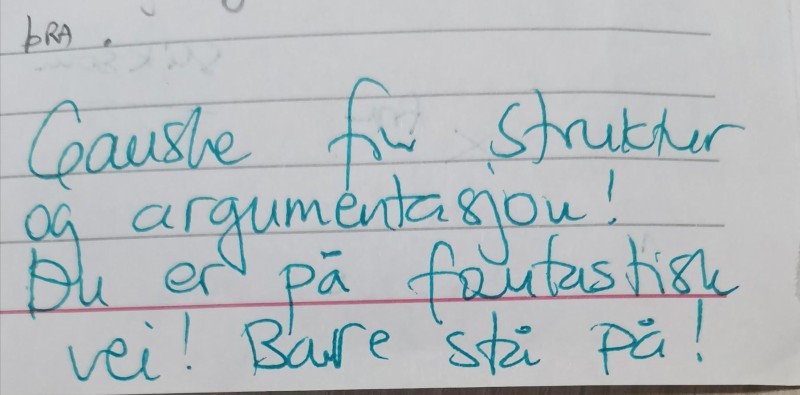 bRA.
Ganske fin struktur
og argumentasjon!
Du er på fantastisk
vei! Bare stå på!